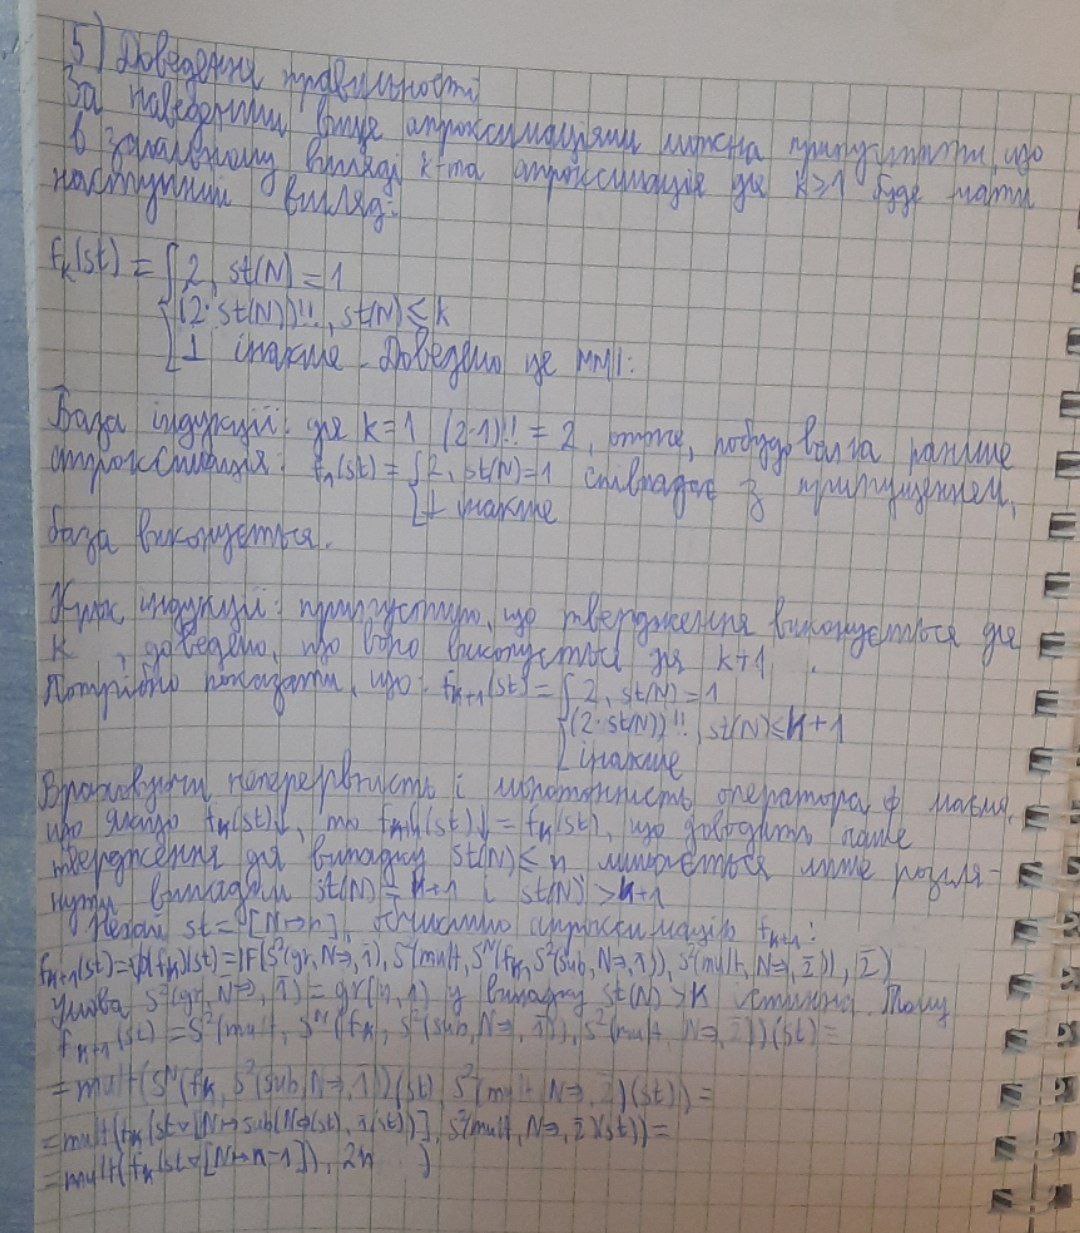 5) Доведення правильності
За наведеними вище апроксимаціями можна припустити, що
в загальному вигляді k-та апроксимація для k≥1 буде мати
наступний вигляд:
fₖ(st) = { 2, st(N) = 1
(2·st(N))!!, st(N) ≤ k
⊥ інакше. Доведемо це ММІ:
База індукції: для k=1 (2·1)!! = 2, отже, побудована раніше
апроксимація: f₁(st) = { 2, st(N)=1 співпадає з припущенням,
⊥ інакше
база виконується.
Крок індукції: припустимо, що твердження виконується для
k, доведемо, що воно виконується для k+1.
Потрібно показати, що: fₖ₊₁(st) = { 2, st(N)=1
(2·st(N))!!, st(N)≤k+1
⊥ інакше
Враховуючи неперервність і монотонність оператора φ маємо,
що якщо fₖ(st)↓, то fₖ₊₁(st)↓=fₖ(st), що доводить наше
твердження для випадку st(N)≤n лишається лише розгля-
нути випадки st(N)=k+1 і st(N)>k+1
Нехай st=[N↦n], обчислимо апроксимацію fₖ₊₁:
fₖ₊₁(st)=φ(fₖ)(st)=IF(S²(gr,N⇒,1̄), S²(mult, Sᴺ(fₖ, S²(sub,N⇒,1̄)), S²(mult,N⇒,2̄)), 2̄)
Умова S²(gr,N⇒,1̄)=gr(n,1) у випадку st(N)>k істинна. Тому
fₖ₊₁(st)=S²(mult, Sᴺ(fₖ, S²(sub,N⇒,1̄)), S²(mult,N⇒,2̄))(st)=
=mult(Sᴺ(fₖ, S²(sub,N⇒,1̄))(st), S²(mult,N⇒,2̄)(st))=
=mult(fₖ(st∇[N↦sub(N⇒(st), 1̄(st))], S²(mult,N⇒,2̄)(st))=
=mult(fₖ(st∇[N↦n-1]), 2n )